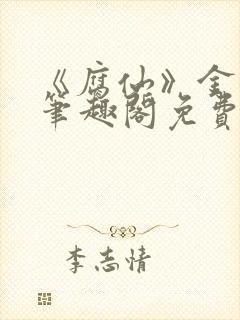 《腐仙》全
笔趣阁免费
李志情